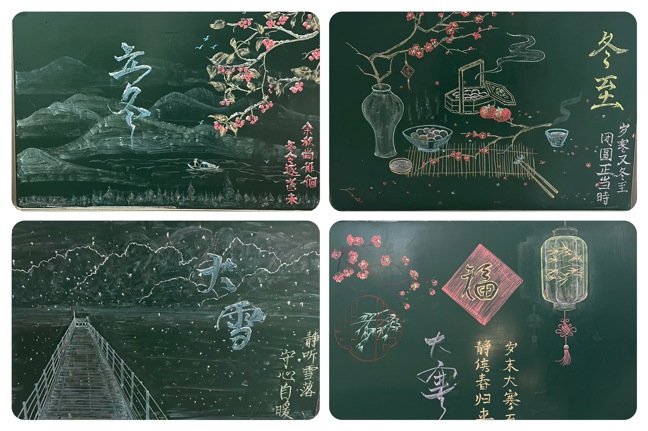 立冬
余秋尚徘徊
冬令
冬至
岁寒又冬至
团圆正当時
大雪
静听雪落
守心自暖
福
大寒
岁末大寒
静待春归来